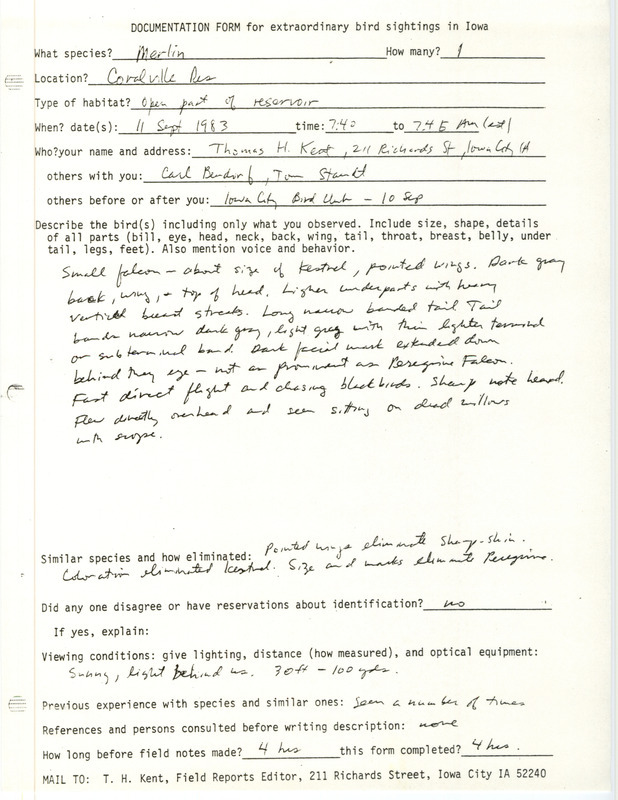 DOCUMENTATION FORM for extraordinary bird sightings in Iowa
What species? Merlin How many? 1
Location? Coralville Res
Type of habitat? Open part of reservoir
When? date(s): 11 Sept 1983 time: 7:40 to 7:45 AM (est)
Who?your name and address: Thomas H. Kent, 211 Richards St, Iowa City IA
others with you: Carl Bendorf, Tom Staudt
others before or after you: Iowa City Bird Club - 10 Sep
Describe the bird(s) including only what you observed. Include size, shape, details
of all parts (bill, eye, head, neck, back, wing, tail, throat, breast, belly, under
tail, legs, feet). Also mention voice and behavior.
Small falcon - about size of Kestrel, pointed wings. Dark gray
back, wing, + top of head. Lighter underparts with heavy
vertical breast streaks. Long narrow banded tail Tail
bands narrow dark gray, light gray with thin lighter terminal
or subterminal band. Dark facial mark extended down
behind the eye - not as prominent as Peregrine Falcon.
Fast direct flight and chasing blackbirds. Sharp note heard.
Flew directly overhead and seen sitting on dead willows
with scope.
Similar species and how eliminated: Pointed wings eliminate Sharp-shin.
Coloration eliminated Kestrel. Size and marks eliminate Peregrine.
Did any one disagree or have reservations about identification? no
If yes, explain:
Viewing conditions: give lighting, distance (how measured), and optical equipment:
Sunny, light behind us. 30 ft - 100 yds.
Previous experience with species and similar ones: Seen a number of times
References and persons consulted before writing description: none
How long before field notes made? 4 hrs this form completed? 4 hrs.
MAIL TO: T. H. Kent, Field Reports Editor, 211 Richards Street, Iowa City IA 52240